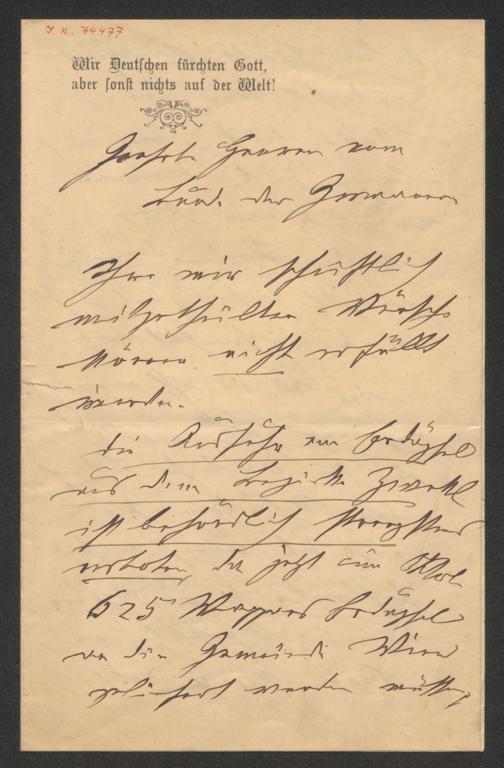 I. N. 74477
Wir Deutschen fürchten Gott,
aber sonst nichts auf der Welt!
Geehrte Herren vom
Bund der Germanen
Ihre mir schriftlich
mitgetheilten Wünsche
können nicht erfüllt
werden.
Die Ausfuhr von Erdäpfel
aus dem Bezirke Zwettl
ist behördlich strengstens
verboten, da jetzt
625 Waggons Erdäpfel
an die Gemeinde Wien
geliefert werden müssen,